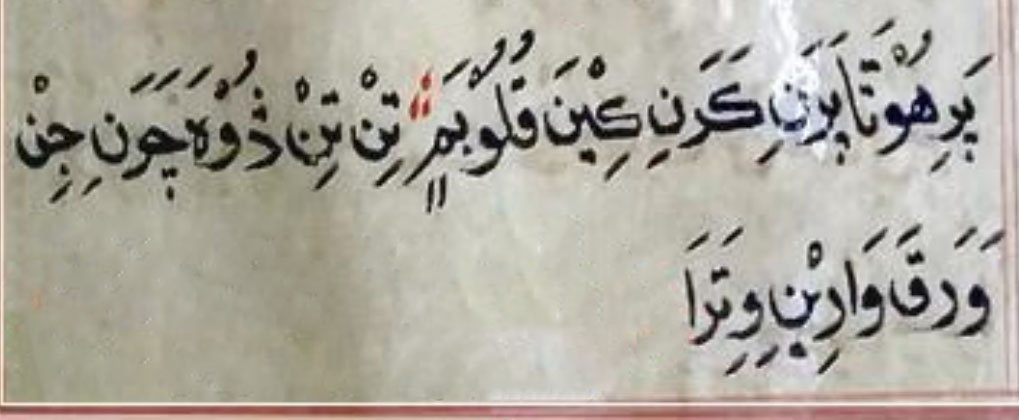 پَرِ هُوْتَا پَرَنِ كَرَنِ كِيْنَ قُلُوْبَمٍ تِنْ تِنْ ذُوْهَ چَرَنِ جِنْ
وَرَقَ وَارِيْنِ وِتِرَا